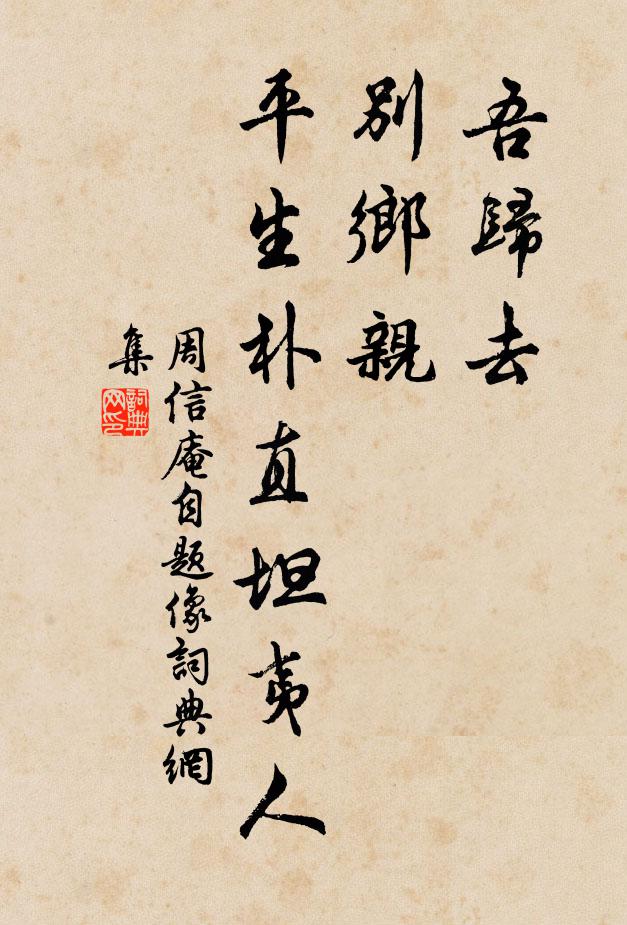 吾歸去
別鄉親
平生朴直坦夷人
周信庵自題像詞典網
集
詞典网印